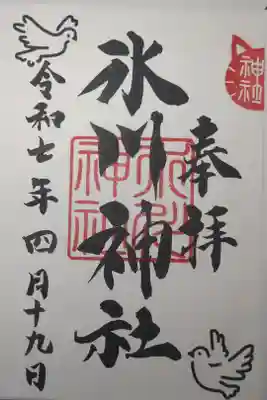 奉拝
氷川神社
令和七年四月十九日
神社